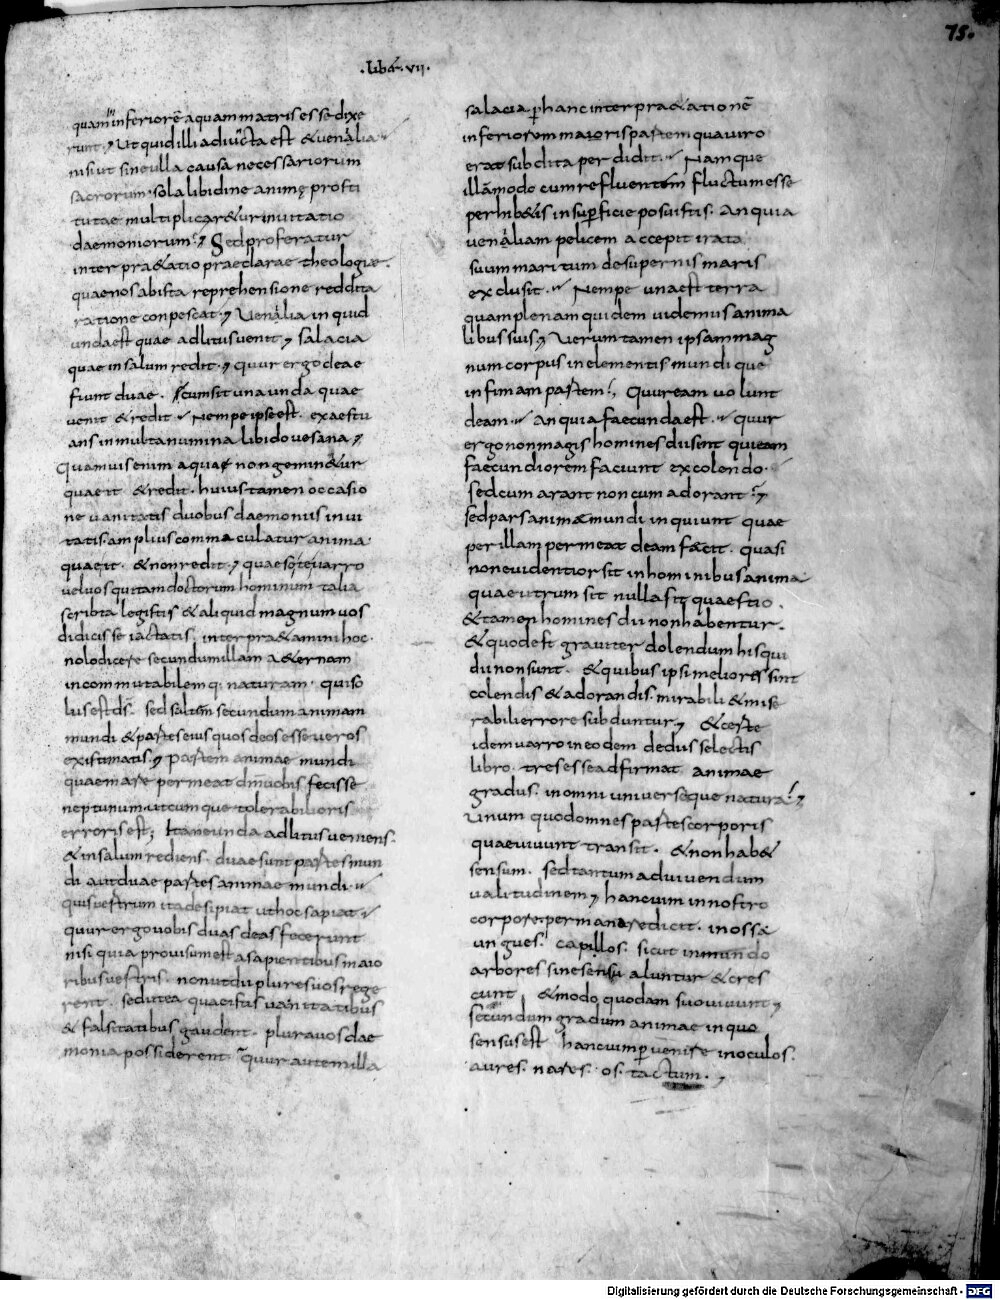 75.
.liber. vii.
quam inferiorē aquam matris esse dixe
runt; Ut quid illi adiuncta est & uenalia
nisi ut sine ulla causa necessariorum
sacrorum. sola libidine animę prosti
tutae multiplicar&ur inuitatio
daemoniorum; Sed proferatur
interpra&atio praeclarae theologiae.
quae nos ab ista reprehensione reddita
ratione conpescat; Uenalia inquid
unda est quae ad litus uenit; salacia
quae in salum redit; quur ergo deae
fiunt duae. cum sit una unda quae
uenit & redit Nempe ipse est. exaestu
ans in multa numina libido uesana;
Quamuis enim aqua non gemin&ur
quae it & redit. huius tamen occasio
ne uanitatis duobus daemoniis inui
tatis. amplius commaculatur anima.
quae it. & non redit; quaeso te uarro
uel uos qui tam doctorum hominum talia
scripta legistis & aliquid magnum uos
didicisse iactatis. interpra&amini hoc.
nolo dicere secundum illam a&ernam
incommutabilemq; naturam. qui so
lus est dś. sed saltem secundum animam
mundi & partes eius quos deos esse ueros
existimatis; partem animae mundi
quae mare permeat dm̄ uobis fecisse
neptunum. utcumque tolerabilioris
erroris est; Itane unda ad litus ueniens.
& in salum rediens. duae sunt partes mun
di aut duae partes animae mundi.
quis uestrum ita desipiat ut hoc sapiat
quur ergo uobis duas deas fecerunt
nisi quia prouisum est a sapientibus maio
ribus uestris. non ut dii plures uos rege
rent. sed ut ea quae istis uanitatibus
& falsitatibus gaudent. plura uos dae
monia possiderent quur autem illa
salacia ꝑ hanc interpra&ationē
inferiorem maioris partem qua uiro
erat subdita perdidit. Namque
illā modo cum refluentem fluctum esse
perhib&is in suꝑficie posuistis. An quia
uenaliam pelicem accepit irata
suum maritum de supernis maris
exclusit. Nempe una est terra
quam plenam quidem uidemus anima
libus suis; Uerum tamen ipsam mag
num corpus in elementis mundique
infimam partem. Quur eam uolunt
deam. An quia faecunda est. Quur
ergo non magis homines dii sint qui eam
faecundiorem faciunt excolendo.
sed cum arant non cum adorant;
sed pars animae mundi inquiunt quae
per illam permeat deam facit. quasi
non euidentior sit in hominibus anima
quae utrum sit nulla fit quaestio.
& tamen homines dii non habentur.
& quod est grauiter dolendum his qui
dii non sunt. & quibus ipsi meliores sint
colendis & adorandis. mirabili & mise
rabili errore subduntur; & certe
idem uarro in eodem de diis selectis
libro. tres esse adfirmat animae
gradus. in omni uniuersaque natura;
Unum quod omnes partes corporis
quae uiuunt transit. & non hab&
sensum. sed tantum ad uiuendum
ualitudinem; hanc uim in nostro
corpore permanare dicit. in ossa
ungues. capillos. sicut in mundo
arbores sine sensu aluntur & cres
cunt & modo quodam suo uiuunt;
secundum gradum animae in quo
sensus est hanc uim ꝑuenire in oculos.
aures. nares. os. tactum.;
Digitalisierung gefördert durch die Deutsche Forschungsgemeinschaft - DFG